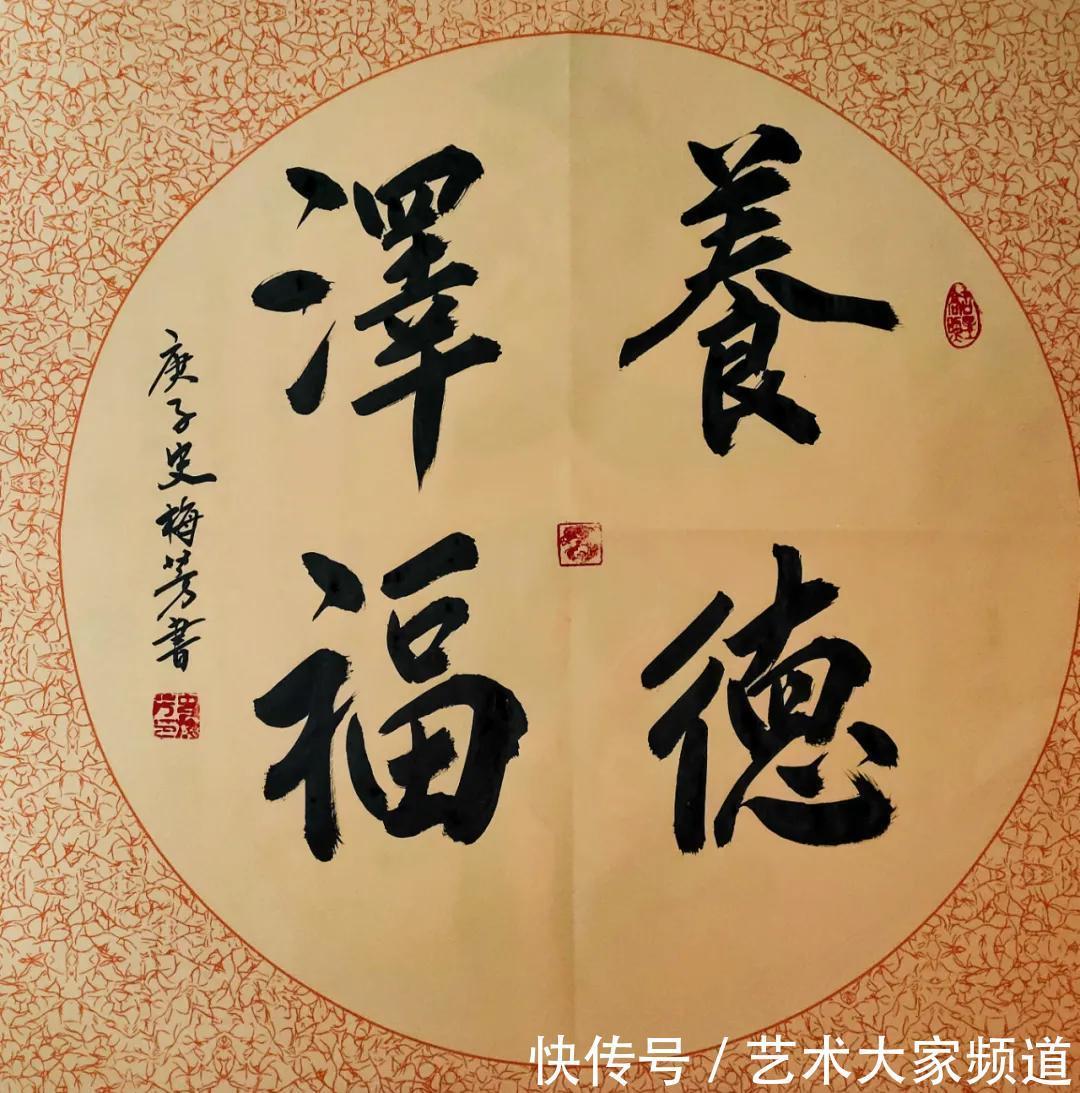 養德
澤福
庚子史梅芳書
快传号 / 艺术大家频道